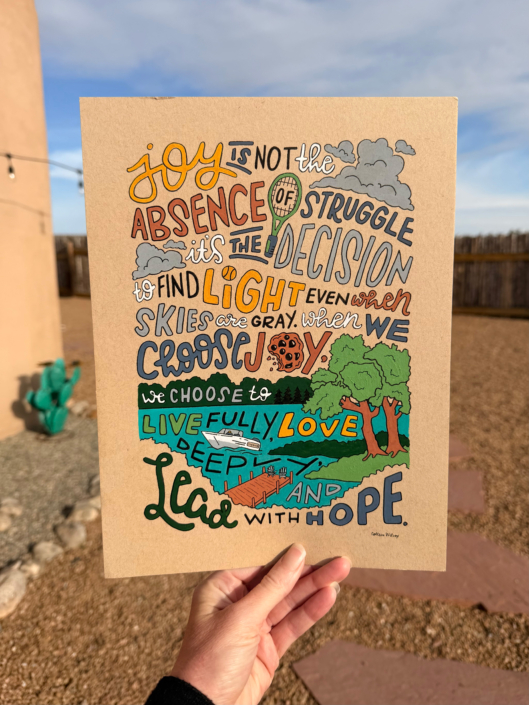 joy IS NOT the
ABSENCE OF STRUGGLE
it's THE DECISION
to FIND LiGHT EVEN when
SKIES are GRAY. when WE
CHOOSE JOY.
we CHOOSE to
LIVE FULLY, LOVE
DEEPLY,
AND
Lead WITH HOPE.